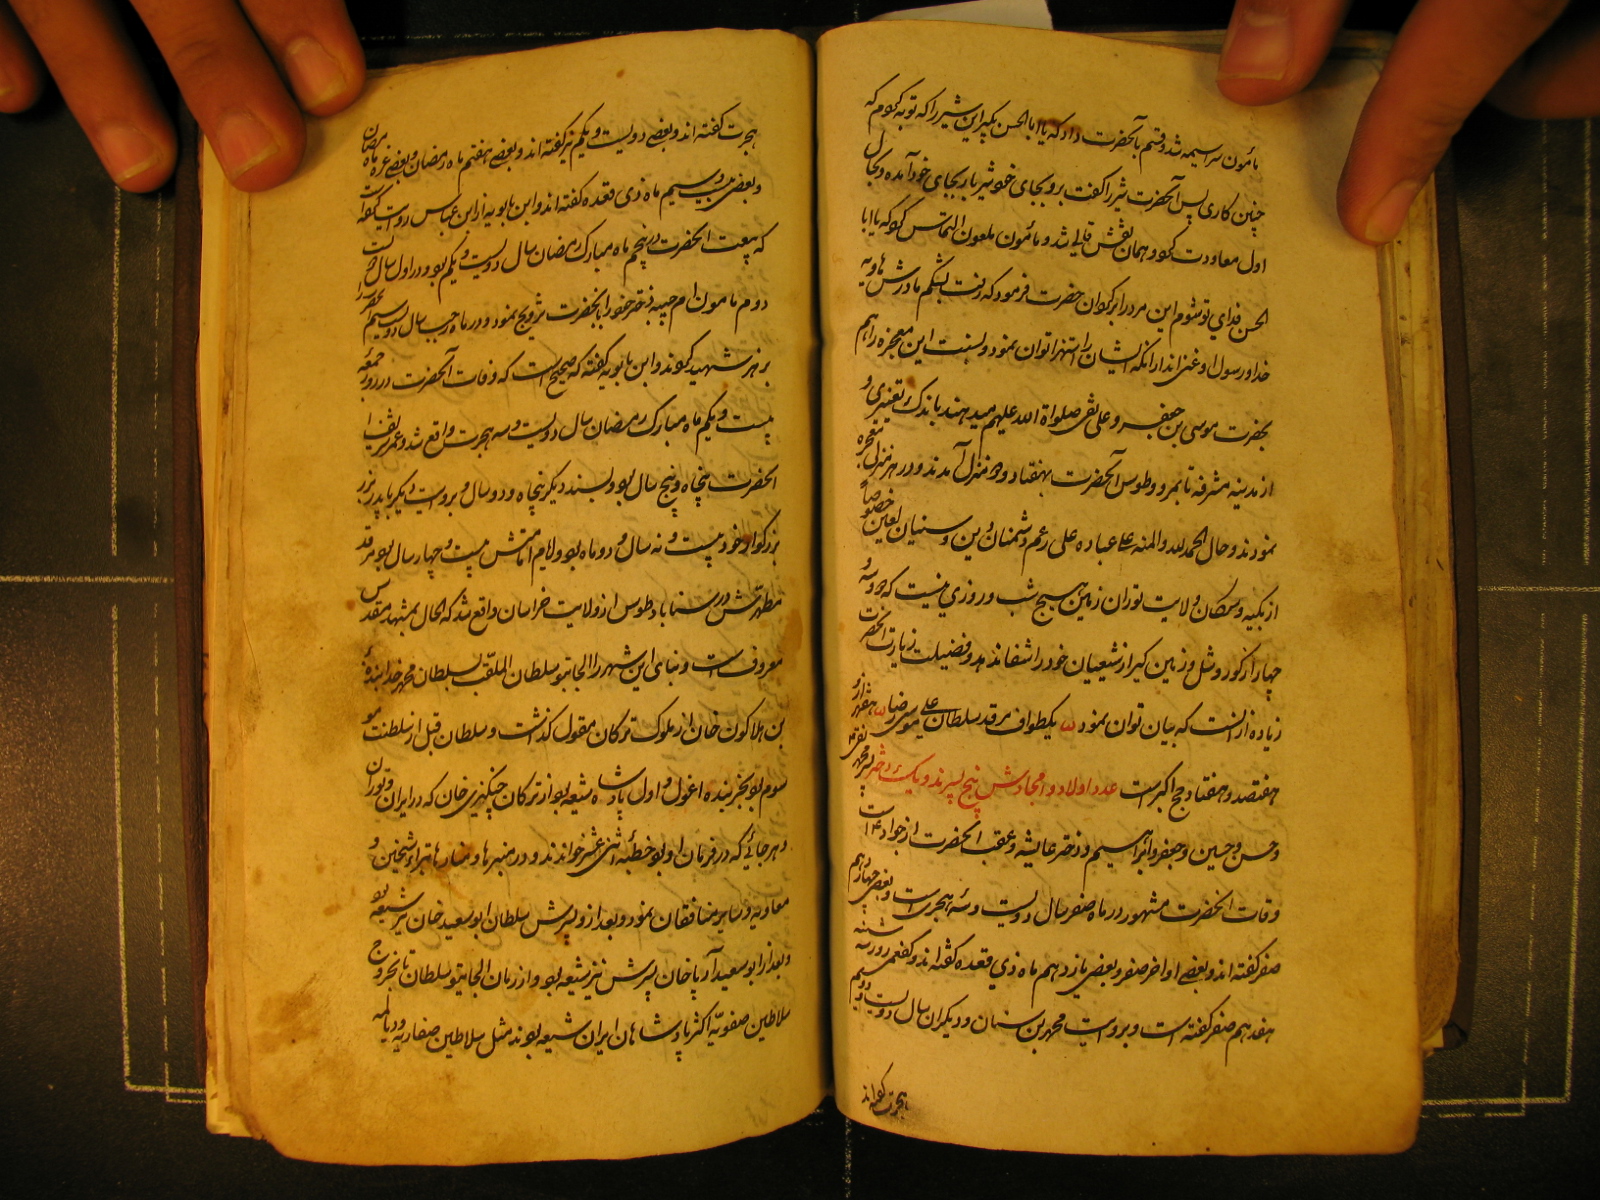 مأمون سراسیمه شد و قسم بآنحضرت داد که یا ابا الحسن بگو این شیر را که توبه کردم که
چنین کاری پس آنحضرت شیر را گفت برو بجای خود شیر باز بجای خود آمده و بحال
اول معاودت کرد و همان نقش قالی شد و مأمون ملعون التماس کرد که یا ابا
الحسن فدای تو شوم این مرد را برگردان حضرت فرمود که رفت بشکم مادرش هاویه
خدا و رسول او غنی اند از آنکه ایشان را استهزا توان نمود و نسبت این معجزه را هم
بحضرت موسی بن جعفر و علی نقی صلواة الله علیهم میدهند باندک تغییری و
از مدینه مشرفه تا بمرو و طوس آنحضرت بهفتاد و دو منزل آمدند و در هر منزل معجزه
نمودند و حال الحمد لله والمنه علی عباده علی رغم دشمنان دین و سنیان لعین خصوصاً
از بکیه و سکان ولایت توران زمین هیچ شب و روزی نیست که دو و سه و
چهار از کور و شل و زمین گیر از شیعیان خود را شفا ندهد و فضیلت زیارت آنحضرت
زیاده از آنست که بیان توان نمود یکطواف مرقد سلطان علی موسی رضا هفت هزار و
هفتصد و هفتاد حج اکبر است عدد اولاد و امجادش پنج پسرند و یک دختر محمد تقی
و حسن و حسین و جعفر و ابراهیم و دختر عایشه و عقب آنحضرت از جواد است
وفات آنحضرت مشهور در ماه صفر سال دویست و سه هجریست و بعضی چهاردهم
صفر گفته اند و بعضی اواخر صفر و بعضی یازدهم ماه ذی قعده گفته اند و کفعمی روز سه شنبه
هفدهم صفر گفته است و بروایت محمد بن سنان و دیگران سال دویست و دویم
هجرت گفته اند
هجرت گفته اند و بعضی دویست و یکم نیز گفته اند و بعضی هفتم ماه رمضان و بعضی غره ماه رمضان
و بعضی بیست و سیم ماه ذی قعده گفته اند و ابن بابویه از ابن عباس روایت کرده
که بیعت آنحضرت در پنجم ماه مبارک رمضان سال دویست و یکم بود و در اول سال دویست
دوم مامون ام حبیبه دختر خود را بآنحضرت تزویج نمود و در ماه رجب سال دویست سیم آنحضرت را
بزهر شهید کردند و ابن بابویه گفته که صحیح آنست که وفات آنحضرت در روز جمعهٔ
بیست و یکم ماه مبارک رمضان سال دویست و سه هجرت واقع شد و عمر شریف
آنحضرت پنجاه و پنج سال بود و بسند دیگر پنجاه و دو سال و بروایت دیگر با پدر
بزرگوار خود بیست و نه سال و دو ماه بود و ایام امامتش بیست و چهار سال بود مرقد
مطهرش در سناباد طوس از ولایت خراسان واقع شد که الحال بمشهد مقدس
معروفست و بنای این شهر را الجایتو سلطان الملقب بسلطان محمد خدابندهٔ
بن هلاکون خان از ملوک ترکان مغول گذاشت و سلطان قبل از سلطنت
موسوم بود بخربنده اغول و اول پادشاه شیعه بود از ترکان چنگیزی خان که در ایران و توران
و هر جائی که در فرمان او بود خطبهٔ اثنی عشر خواندند و در منبرها و منارها تبرا و شیخین و
معاویه و سایر منافقان نمود و بعد از و پسرش سلطان ابو سعید خان نیز شیعه بود
و بعد از ابو سعید آرپا خان پسرش نیز شیعه بود و از زمان الجایتو سلطان تا خروج
سلاطین صفویه اکثر پادشاهان ایران شیعه بودند مثل سلاطین صفاریه و دیالمه